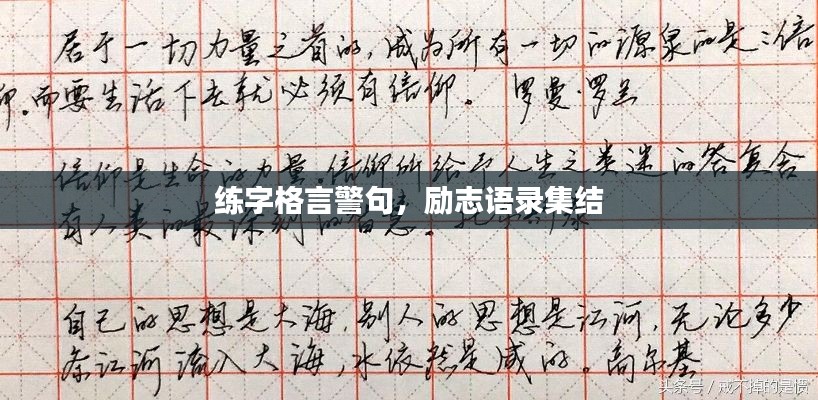 居于一切力量之首的,成为所有一切的源泉的是:信
仰.而要生活下去就必须有信仰。 罗曼·罗兰
信仰是生命的力量.信仰所给予人生之类迷的答复含
练字格言警句，励志语录集结
有人类的最深刻的
自己的思想是大海,别人的思想是江河,无论多少
条江河流入大海,水依然是咸的。高尔基
头条号 / 戒不掉的是惯